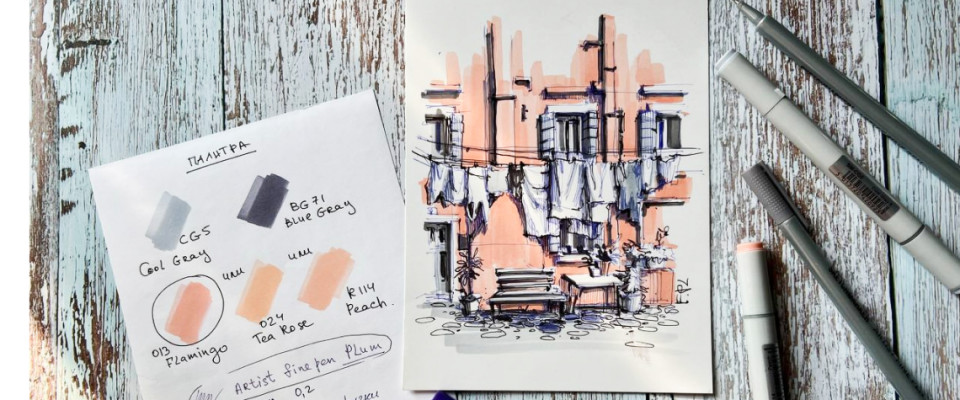 ПАЛИТРА
CG5
Cool Gray
BG71
Blue Gray
или
или
013
Flamingo
024
Tea Rose
R114
Peach.
Artist fine pen Plum
0,2